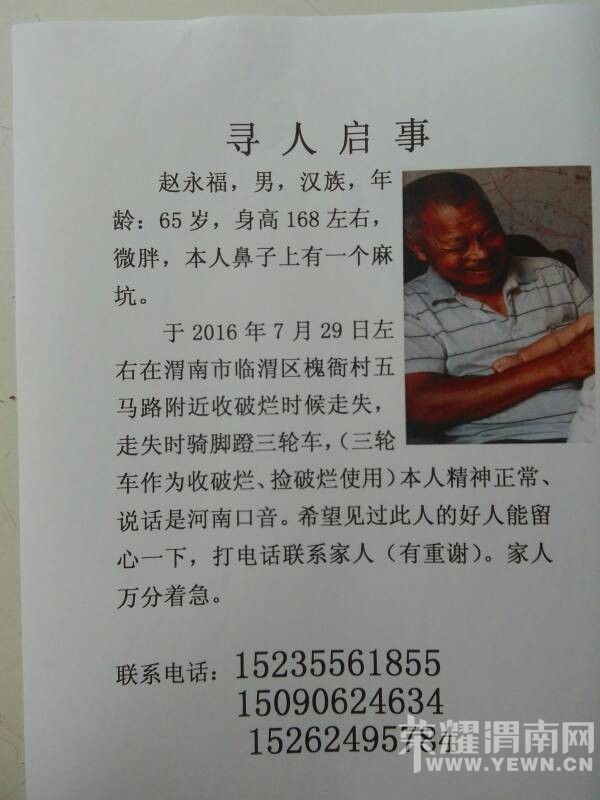 寻人启事
赵永福，男，汉族，年
龄：65岁，身高168左右，
微胖，本人鼻子上有一个麻
坑。
于2016年7月29日左
右在渭南市临渭区槐衙村五
马路附近收破烂时候走失，
走失时骑脚蹬三轮车，（三轮
车作为收破烂、捡破烂使用）本人精神正常、
说话是河南口音。希望见过此人的好人能留
心一下，打电话联系家人（有重谢）。家人
万分着急。
联系电话：15235561855
15090624634
15262495784
荣耀渭南网
WWW.YEWN.CN